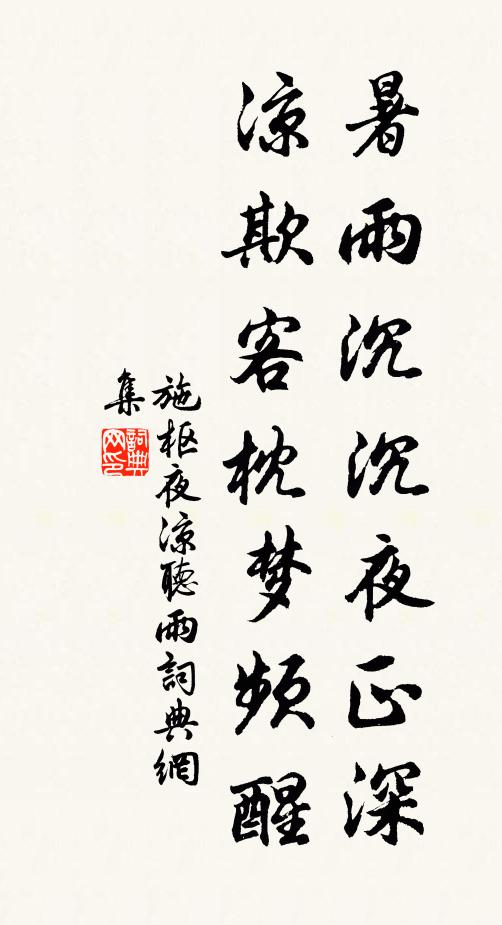 暑雨沉沉夜正深
凉欺客枕梦频醒
施枢夜凉聽雨詞典網
集
詞典网印